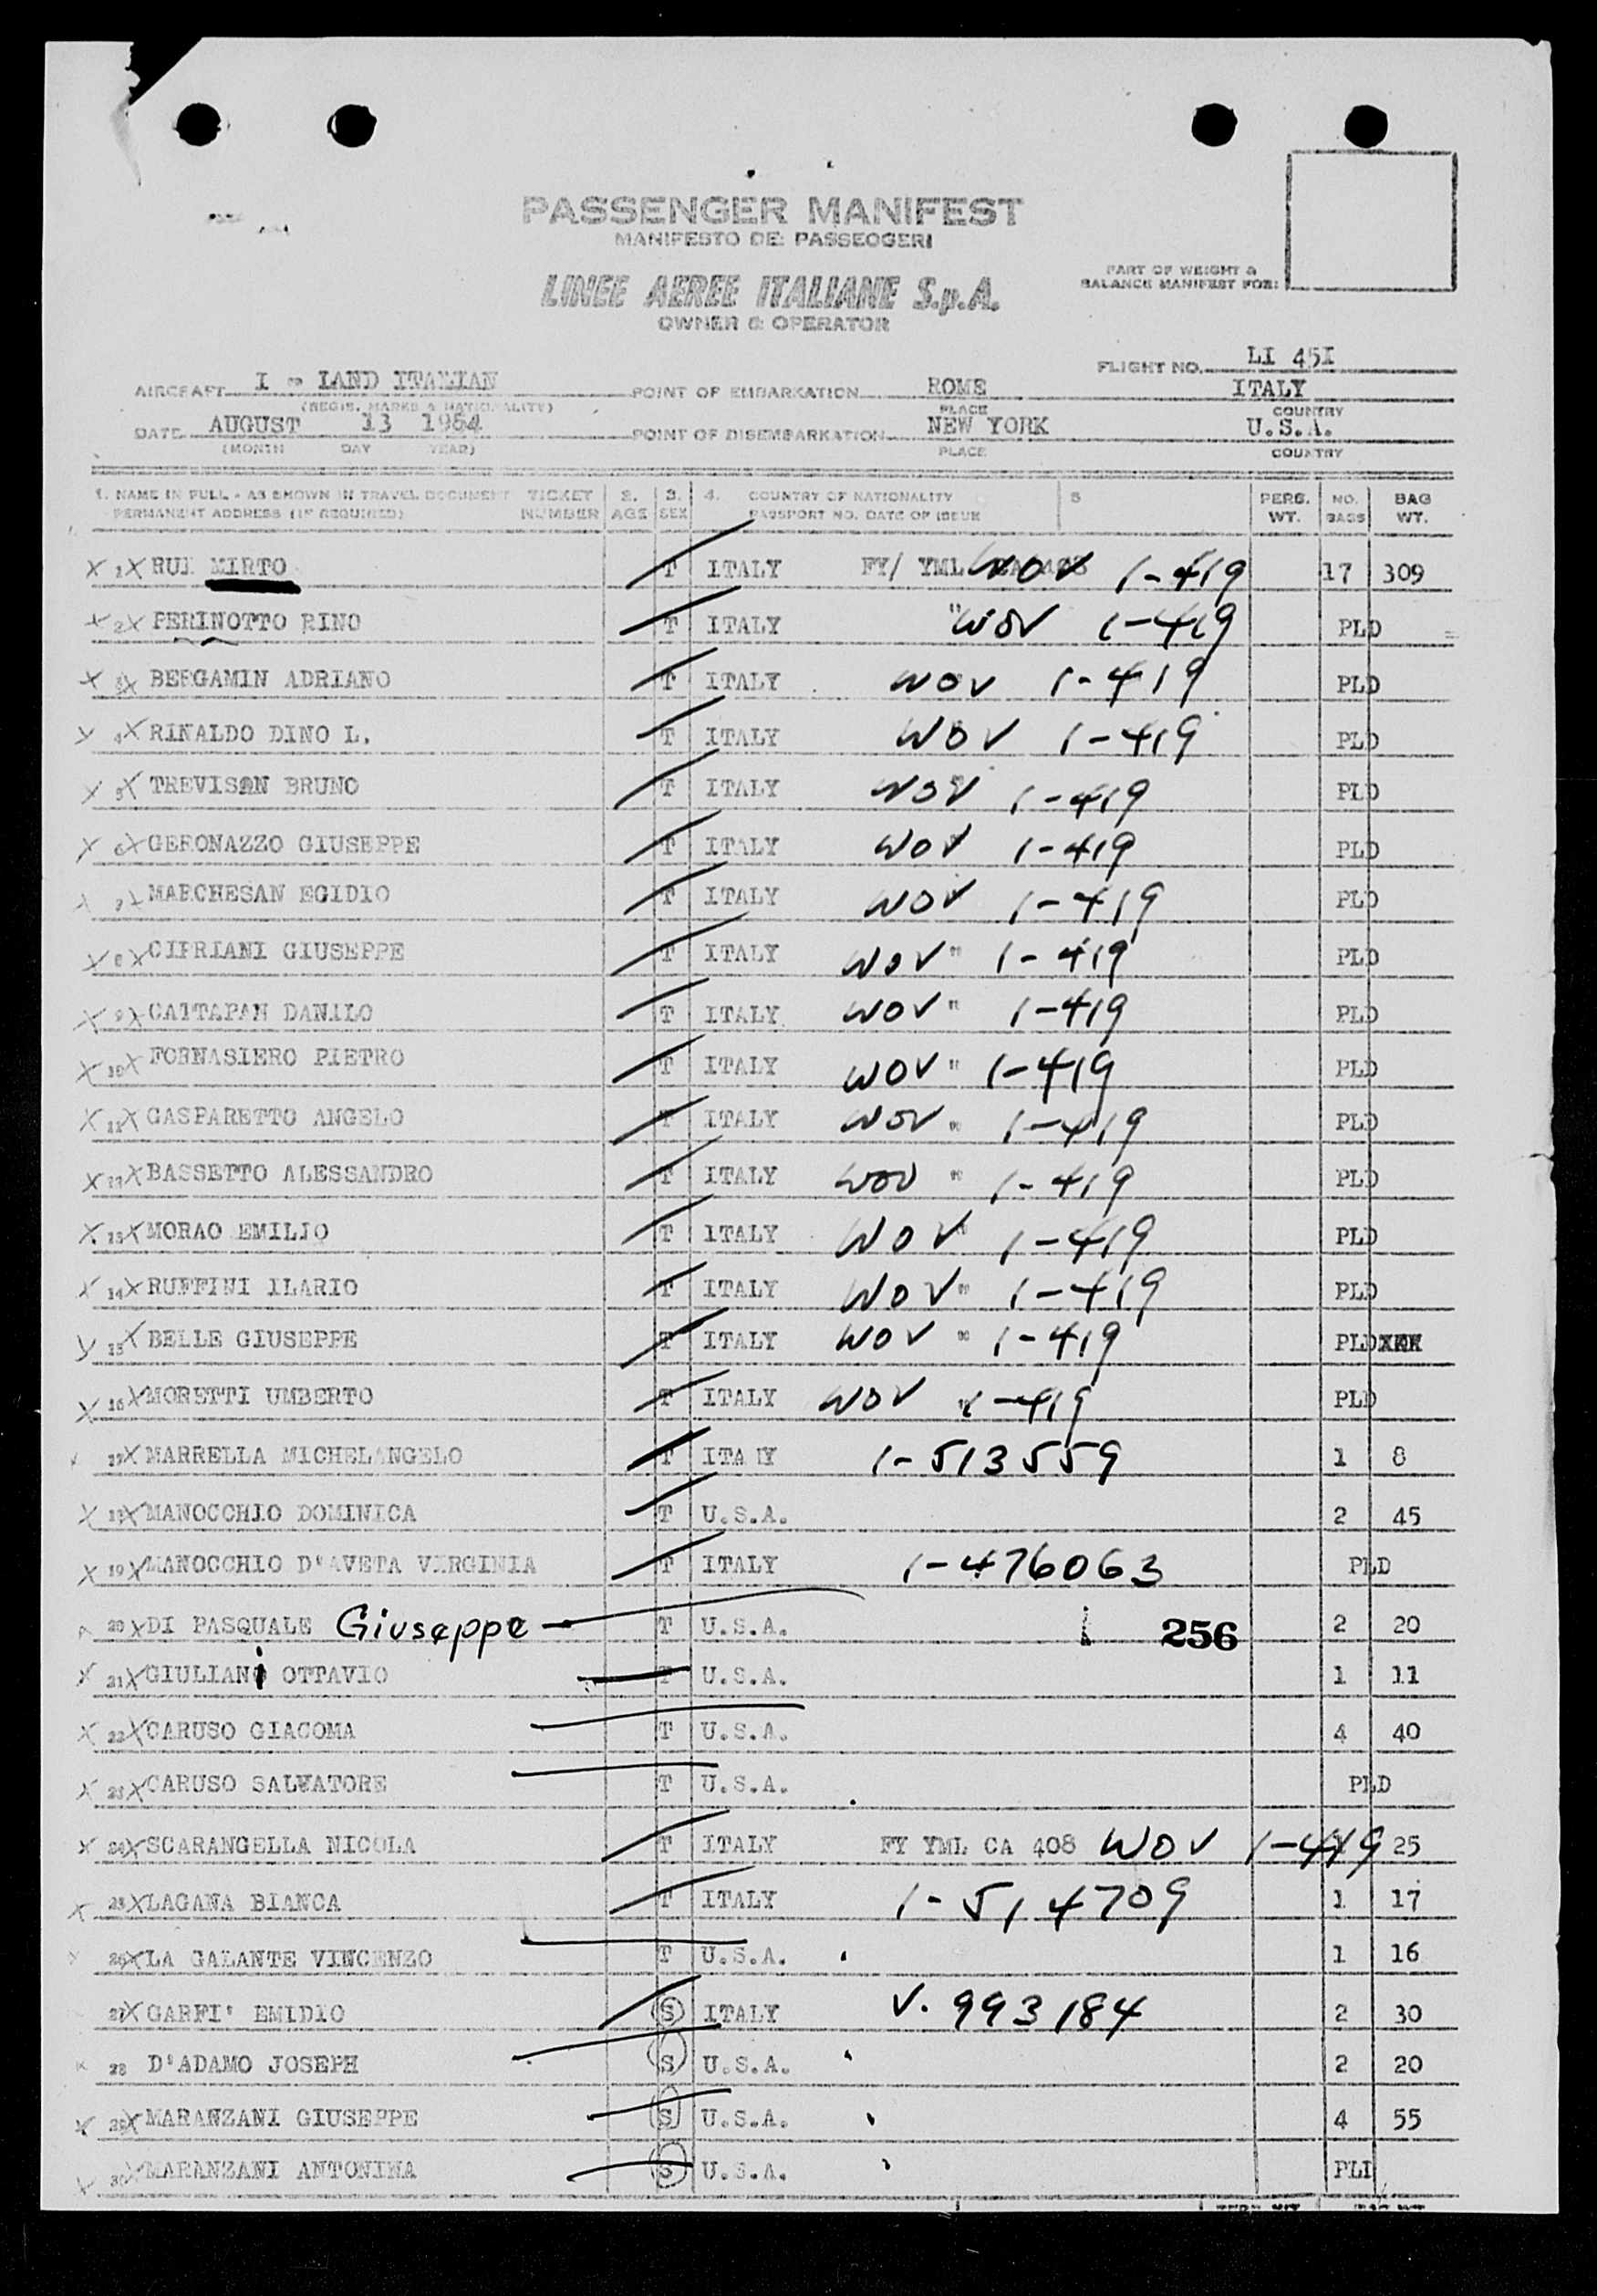 PASSENGER MANIFEST
MANIFESTO DEI PASSEGGERI
LINEE AEREE ITALIANE S.p.A.
OWNER & OPERATOR
PART OF WEIGHT &
BALANCE MANIFEST FOR:
FLIGHT NO. LI 45I
AIRCRAFT I - LAND ITALIAN POINT OF EMBARKATION ROME ITALY
(REGIS. MARKS & NATIONALITY) PLACE COUNTRY
DATE AUGUST 13 1954 POINT OF DISEMBARKATION NEW YORK U.S.A.
(MONTH DAY YEAR) PLACE COUNTRY
1. NAME IN FULL - AS SHOWN IN TRAVEL DOCUMENT TICKET 2. 3. 4. COUNTRY OF NATIONALITY 5 PERS. NO. BAG
PERMANENT ADDRESS (IF REQUIRED) NUMBER AGE SEX PASSPORT NO. DATE OF ISSUE WT. BAGS WT.
X 1X RUI MIRTO T ITALY FY/ YML WOV 1-419 17 309
X 2X PERINOTTO RINO T ITALY " WOV 1-419 PLD
X 3X BERGAMIN ADRIANO T ITALY WOV 1-419 PLD
X 4X RINALDO DINO L. T ITALY WOV 1-419 PLD
X 5X TREVISAN BRUNO T ITALY WOV 1-419 PLD
X 6X GERONAZZO GIUSEPPE T ITALY WOV 1-419 PLD
X 7X MARCHESAN EGIDIO T ITALY WOV 1-419 PLD
X 8X CIPRIANI GIUSEPPE T ITALY WOV " 1-419 PLD
X 9X CATTAPAN DANILO T ITALY WOV " 1-419 PLD
X 10X FORNASIERO PIETRO T ITALY WOV " 1-419 PLD
X 11X GASPARETTO ANGELO T ITALY WOV " 1-419 PLD
X 12X BASSETTO ALESSANDRO T ITALY WOV " 1-419 PLD
X 13X MORAO EMILIO T ITALY WOV " 1-419 PLD
X 14X RUFFINI ILARIO T ITALY WOV " 1-419 PLD
X 15X BELLE GIUSEPPE T ITALY WOV " 1-419 PLD
X 16X MORETTI UMBERTO T ITALY WOV " 1-419 PLD
X 17X MARRELLA MICHELANGELO T ITALY 1-513559 1 8
X 18X MANOCCHIO DOMINICA T U.S.A. 2 45
X 19X MANOCCHIO D'AVETA VIRGINIA T ITALY 1-476063 PLD
X 20X DI PASQUALE Giuseppe T U.S.A. 256 2 20
X 21X GIULIANi OTTAVIO T U.S.A. 1 11
X 22X CARUSO GIACOMA T U.S.A. 4 40
X 23X CARUSO SALVATORE T U.S.A. PLD
X 24X SCARANGELLA NICOLA T ITALY FY YML CA 408 WOV 1-419 25
X 25X LAGANA BIANCA T ITALY 1-514709 1 17
X 26X LA GALANTE VINCENZO T U.S.A. 1 16
27X GARFI' EMIDIO S ITALY V. 993184 2 30
X 28 D'ADAMO JOSEPH S U.S.A. 2 20
X 29X MARANZANI GIUSEPPE S U.S.A. 4 55
X 30X MARANZANI ANTONINA S U.S.A. PLD